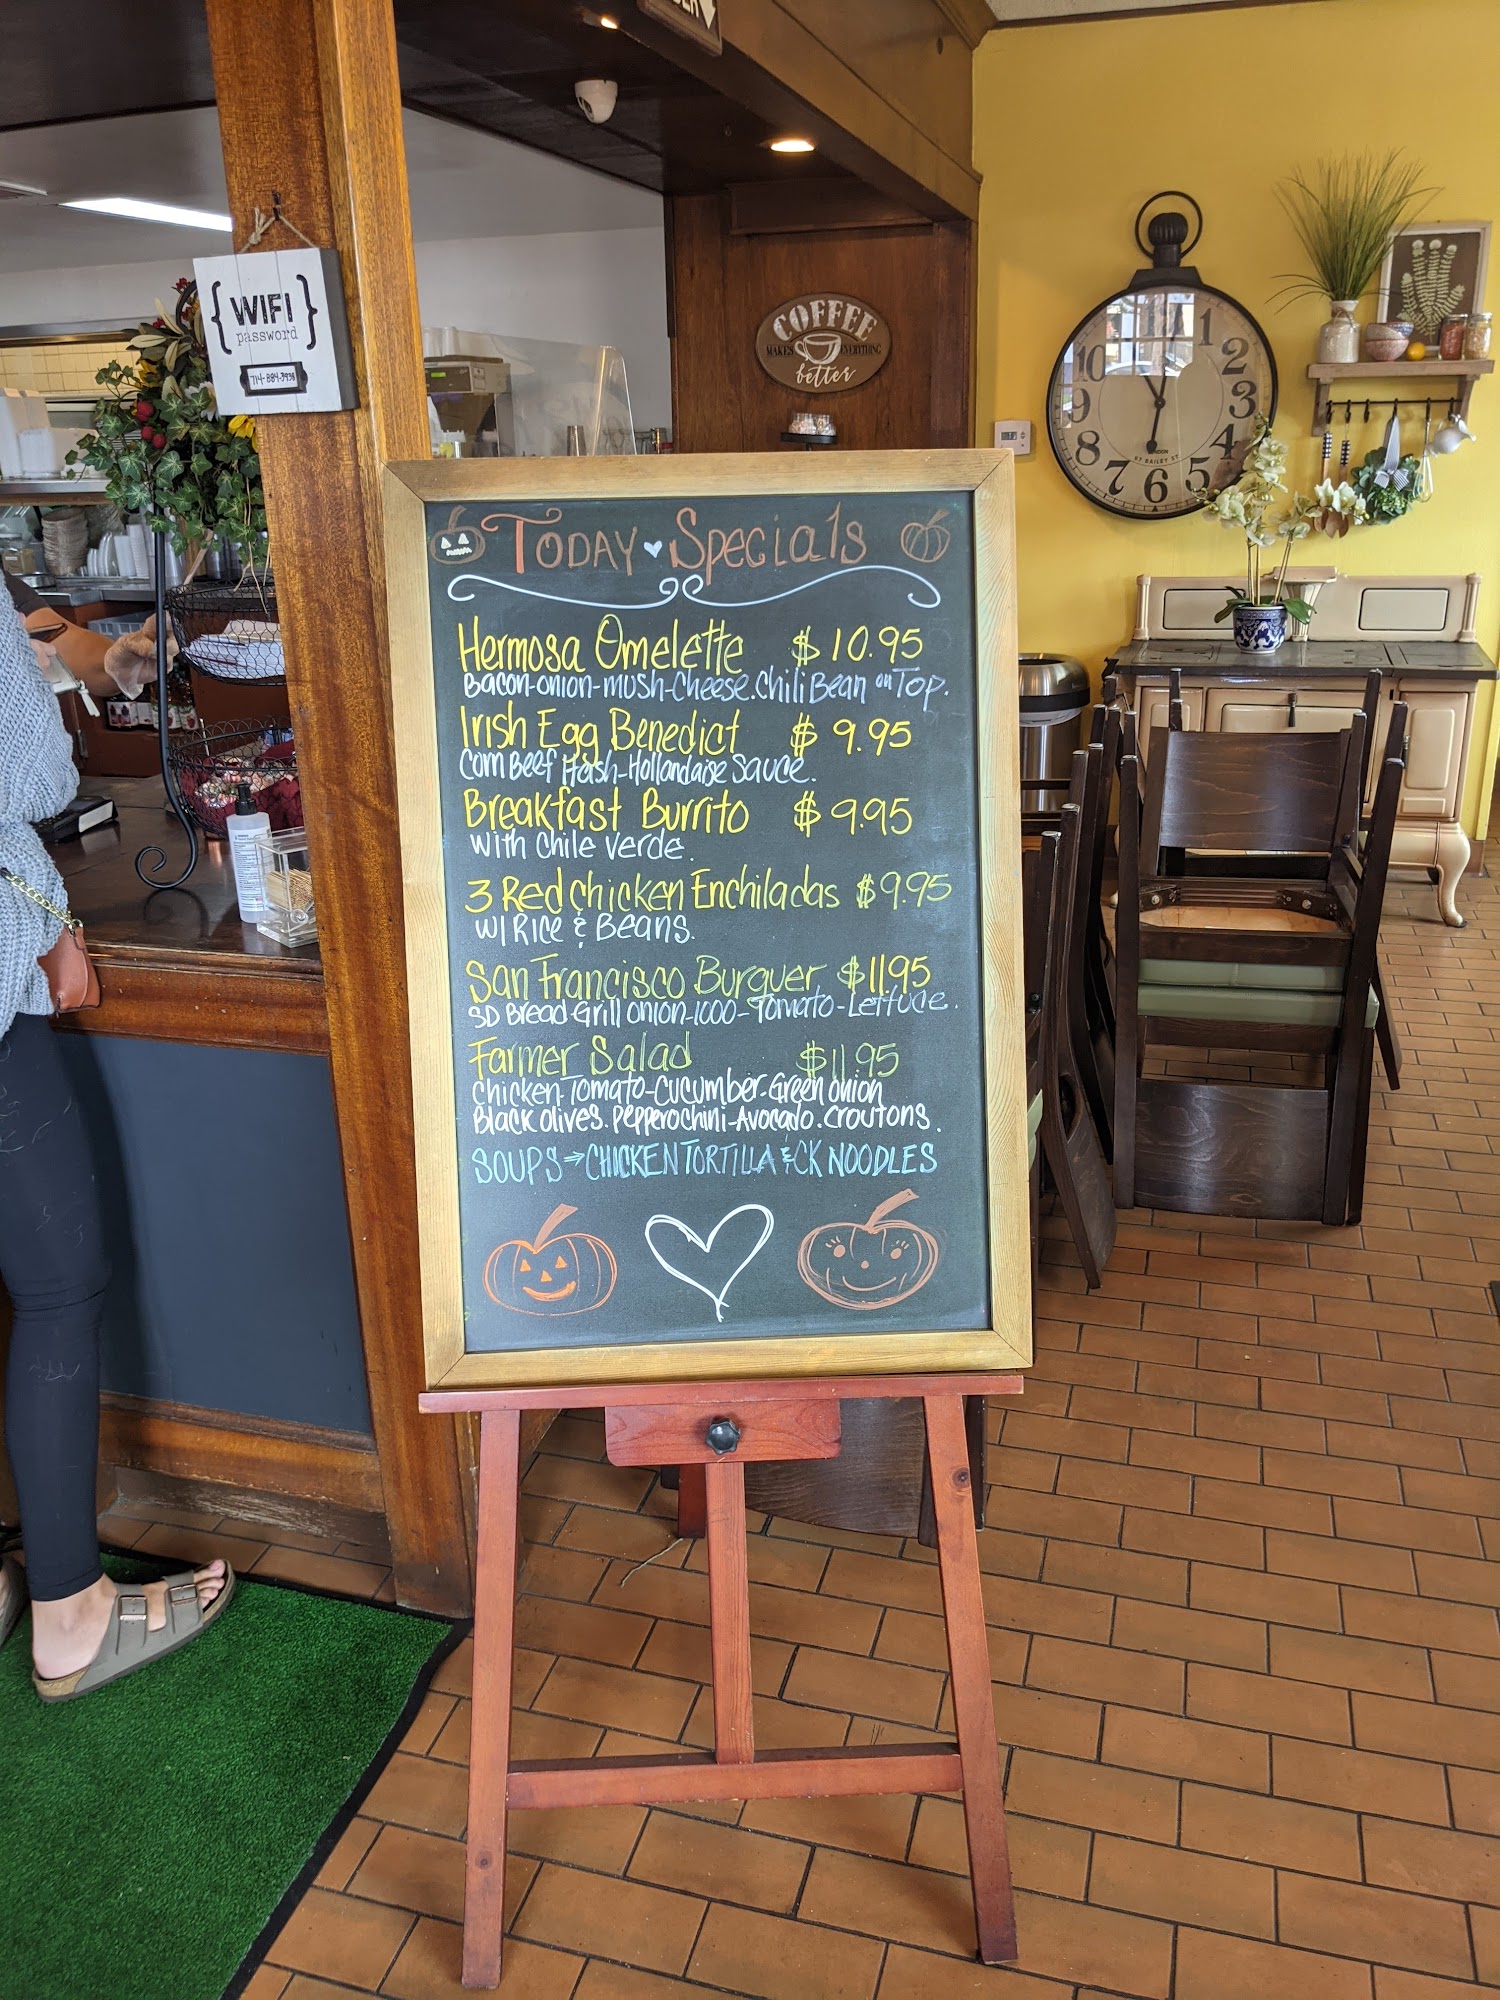 {WIFI}
password
714-884-3938
COFFEE
MAKES EVERYTHING
better
1
2
3
4
5
6
7
8
9
10
LONDON
57 BAILEY ST
Today Specials
Hermosa Omelette $10.95
Bacon-onion-mush-Cheese.Chili Bean on Top.
Irish Egg Benedict $9.95
Corn Beef Hash-Hollandaise Sauce.
Breakfast Burrito $9.95
with Chile Verde.
3 Red chicken Enchiladas $9.95
w/ Rice & Beans.
San Francisco Burguer $11.95
SD Bread-Grill onion-1000-Tomato-Lettuce.
Farmer Salad $11.95
chicken-Tomato-Cucumber-Green onion
Black olives. Pepperochini-Avocado. croutons.
SOUPS → CHICKEN TORTILLA & CK NOODLES